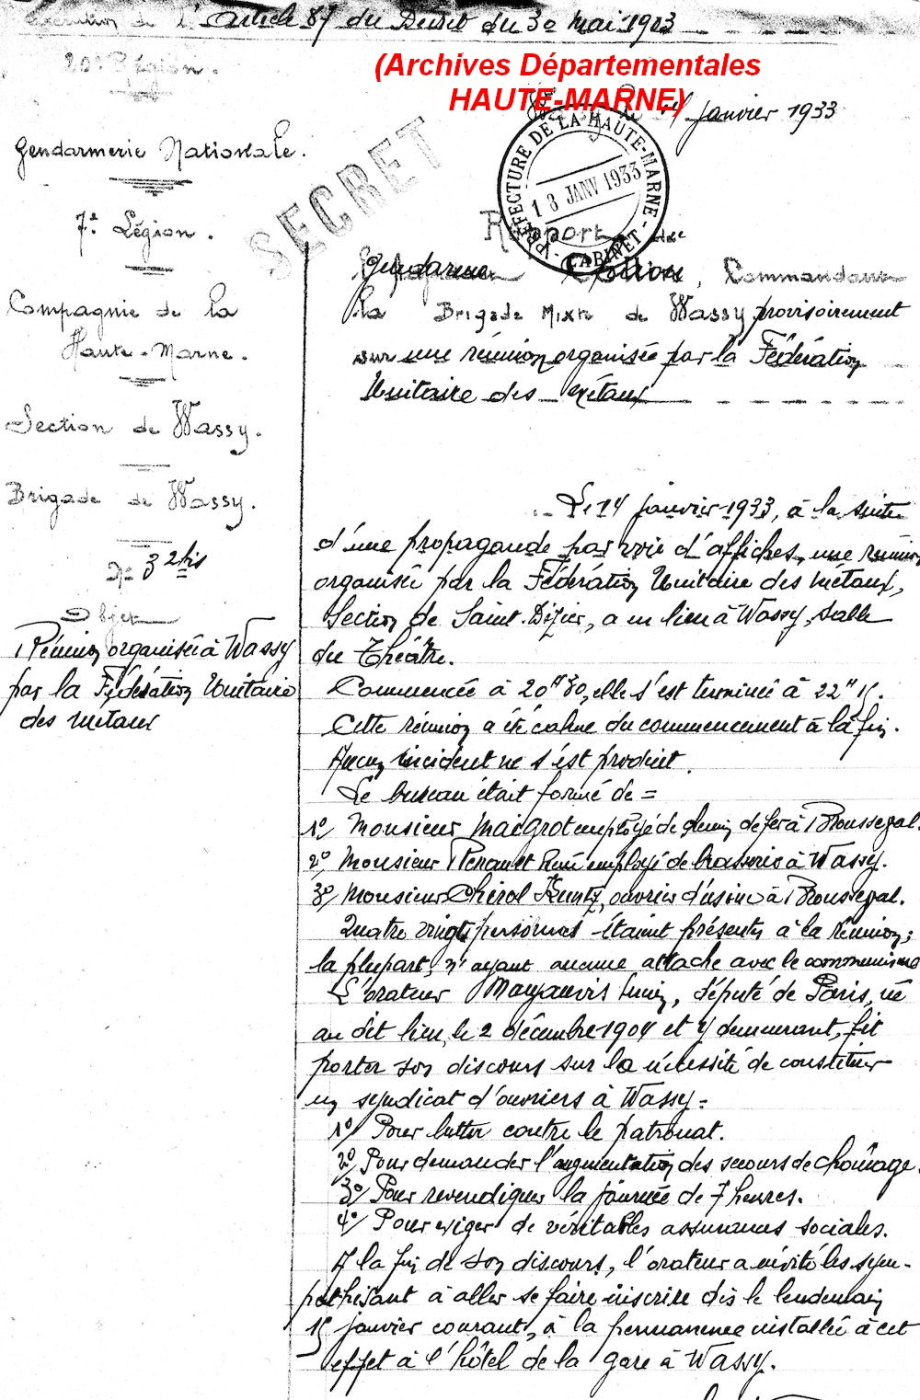 Exécution de l'article 87 du Décret du 30 Mai 1903
20e Région.
(Archives Départementales
HAUTE-MARNE)
janvier 1933
Gendarmerie Nationale.
7e Légion.
Compagnie de la
Haute-Marne.
Section de Wassy.
Brigade de Wassy.
No 32 bis
Objet
Réunion organisée à Wassy
par la Fédération Unitaire
des métaux
SECRET
PREFECTURE DE LA HAUTE-MARNE
18 JANV 1933
CABINET
Rapport du
gendarme Collion, Commandant
la Brigade Mixte de Wassy provisoirement
sur une réunion organisée par la Fédération
Unitaire des métaux
Le 14 janvier 1933, à la suite
d'une propagande par voie d'affiches, une réunion
organisée par la Fédération Unitaire des métaux,
Section de Saint-Dizier, a eu lieu à Wassy, salle
du Théâtre.
Commencée à 20h30, elle s'est terminée à 22h15.
Cette réunion a été calme du commencement à la fin.
Aucun incident ne s'est produit.
Le bureau était formé de =
1o/ Monsieur Maigrot employé de chemin de fer à Brousseval.
2o/ Monsieur René employé de brasserie à Wassy.
3o/ Monsieur Chérol Kuntz, ouvrier d'usine à Brousseval.
Quatre vingt personnes étaient présentes à la réunion;
la plupart, n'ayant aucune attache avec le communisme
L'orateur Monjauvis Lucien, député de Paris, né
au dit lieu, le 2 décembre 1904 et y demeurant, fit
porter son discours sur la nécessité de constituer
un syndicat d'ouvriers à Wassy =
1o/ Pour lutter contre le patronat.
2o/ Pour demander l'augmentation des secours de chômage.
3o/ Pour revendiquer la journée de 7 heures.
4o/ Pour exiger de véritables assurances sociales.
A la fin de son discours, l'orateur a invité les sym-
pathisant à aller se faire inscrire dès le lendemain
15 janvier courant, à la permanence installée à cet
effet à l'hôtel de la gare à Wassy.